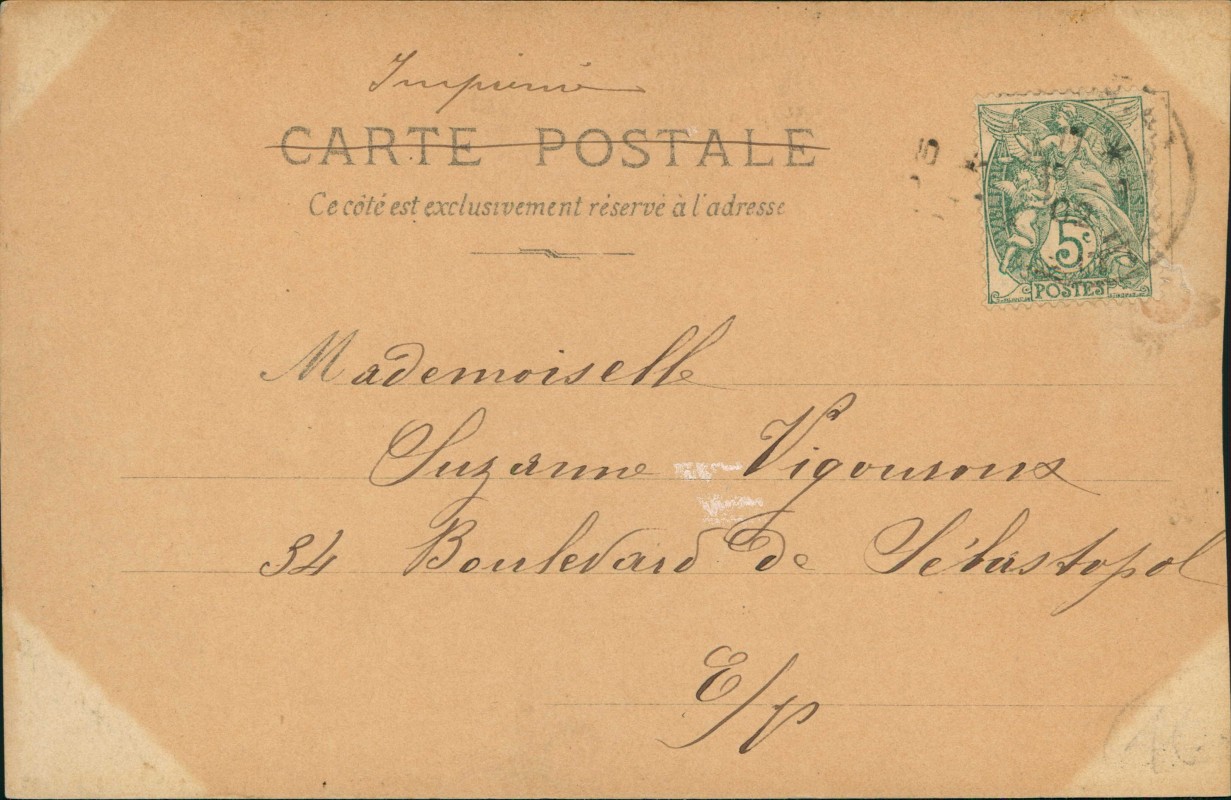 Imprimé
CARTE POSTALE
Ce côté est exclusivement réservé à l'adresse
5c
POSTES
Mademoiselle
Suzanne Vigouroux
34 Boulevard de Sébastopol
E/p